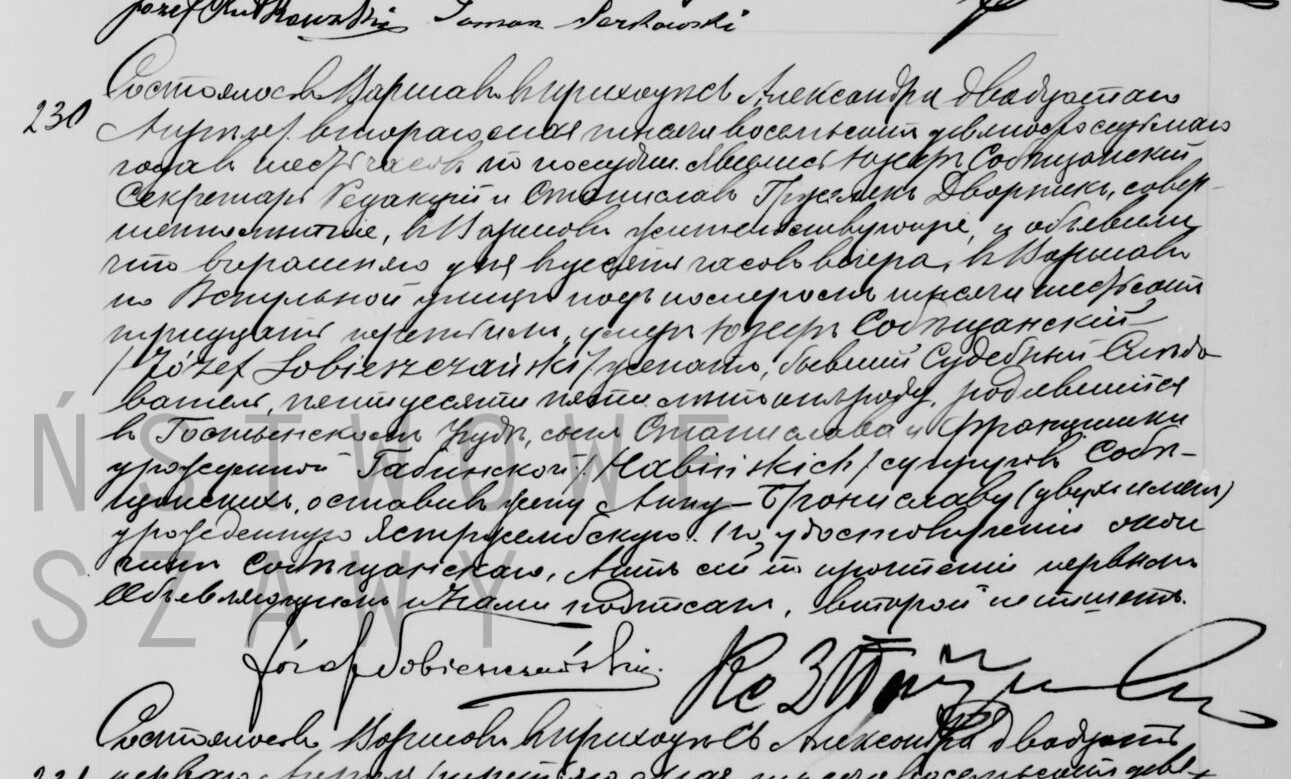 Józef Rutkowski Roman Perkowski
230
Состоялось въ Варшавѣ въ приходѣ Св Александра двадцатаго
Апрѣля / втораго мая тысяча восемьсотъ девяносто седьмаго
года въ шесть часовъ по полудни. Явились Юзефъ Собѣщанскій
Секретарь Редакціи и Станиславъ Дворникъ, совер-
шеннолѣтніе, въ Варшавѣ жительствующіе, и объявили
что вчерашняго дня въ десять часовъ вечера, въ Варшавѣ
по Вспульной улицѣ подъ номеромъ тысяча шестьсотъ
тридцать третьимъ, умеръ Юзефъ Собѣщанскій
/Józef Sobieszczański/ женатъ, бывшій Судебный Слѣдо-
ватель, пятидесяти пяти лѣтъ отъ роду, родившійся
въ Гостынскомъ Уѣздѣ, сынъ Станислава и Францишки
урожденной Габинской /Habińskich/ супруговъ Собѣ-
щанскихъ, оставивъ жену Анну-Брониславу (двухъ именъ)
урожденную Ястржембскую. По удостовѣреніи о кон-
чинѣ Собѣщанскаго, Актъ сей по прочтеніи первымъ
Объявляющимъ и Нами подписанъ, второй не пишетъ.
Józef Sobieszczański.
Состоялось въ Варшавѣ въ приходѣ Св Александра двадцать
231 перваго Апрѣля / третьяго мая тысяча восемьсотъ девя-
Ń S T W O W E
S Z A W Y